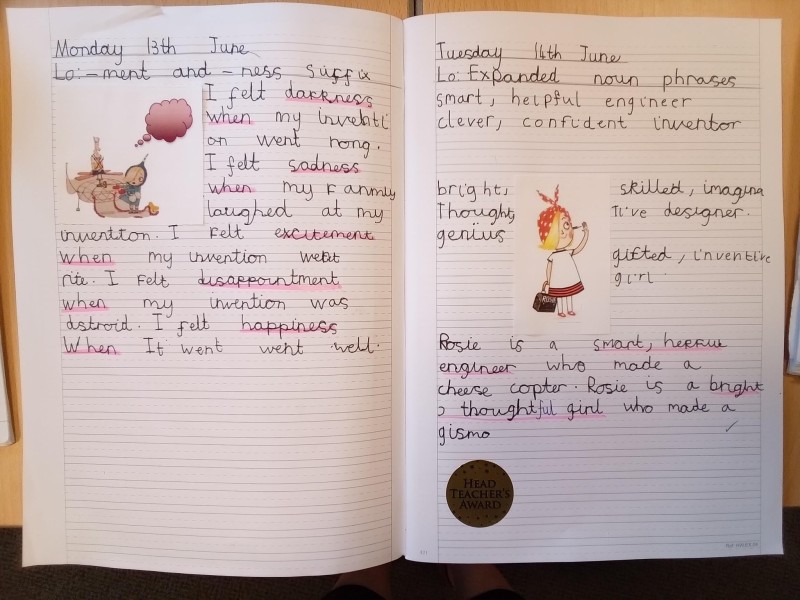 Monday 13th June
Lo: -ment and -ness suffix
I felt darkness
when my inventi
on went rong.
I felt sadness
when my Fammly
laughed at my
invention. I felt excitement
when my invention went
rite. I felt disappointment
when my invention was
dstroid. I felt happiness
When It went weht well.
Tuesday 14th June
Lo: Expanded noun phrases
smart, helpful engineer
clever, confident inventor
bright,
Thought,
genius
skilled, imagina
Tive designer.
gifted, inventive
girl
Rosie is a smart, helful
engineer who made a
cheese copter. Rosie is a bright
, thoughtful girl who made a
gismo
HEAD
TEACHER'S
AWARD